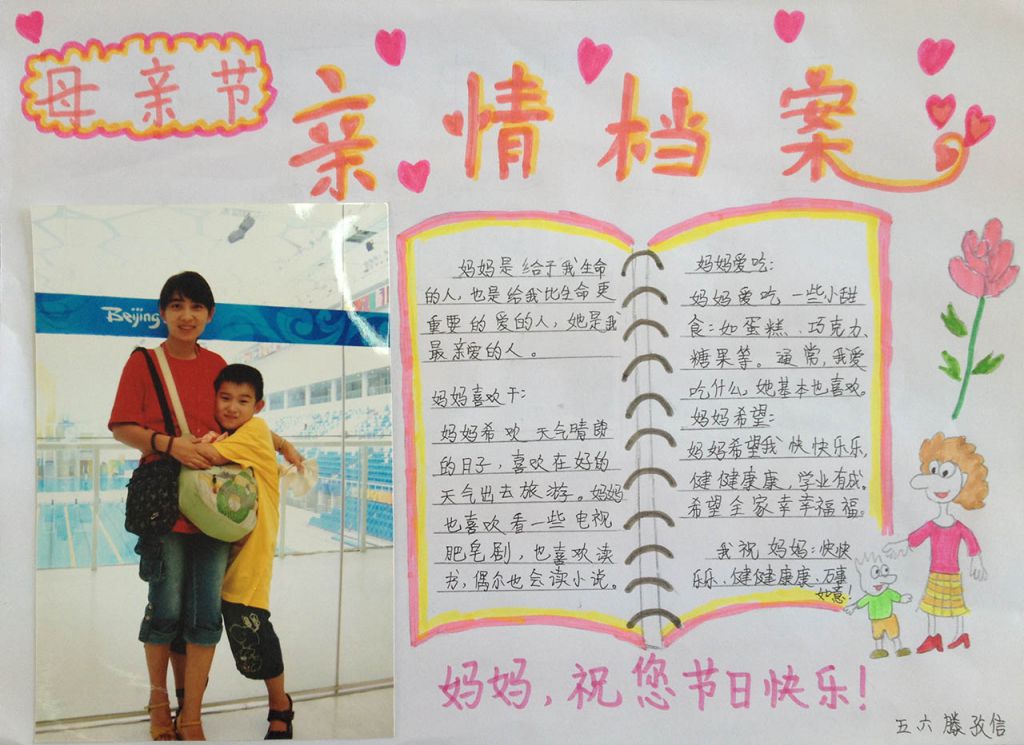 母亲节
亲情档案
Beijing
妈妈是给于我生命
的人,也是给我比生命更
重要的爱的人,她是我
最亲爱的人。
妈妈喜欢干:
妈妈希欢天气晴朗
的日子,喜欢在好的
天气出去旅游。妈妈
也喜欢看一些电视
肥皂剧,也喜欢读
书,偶尔也会读小说。
妈妈爱吃:
妈妈爱吃一些小甜
食:如蛋糕、巧克力、
糖果等。通常,我爱
吃什么,她基本也喜欢。
妈妈希望:
妈妈希望我快快乐乐,
健健康康,学业有成。
希望全家幸幸福福。
我祝妈妈:快快
乐乐、健健康康、万事
如意!
妈妈,祝您节日快乐!
五六 滕孜信